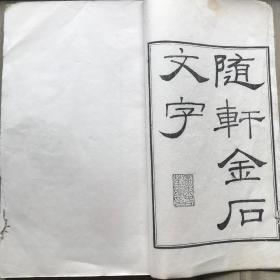 随軒金石
文字